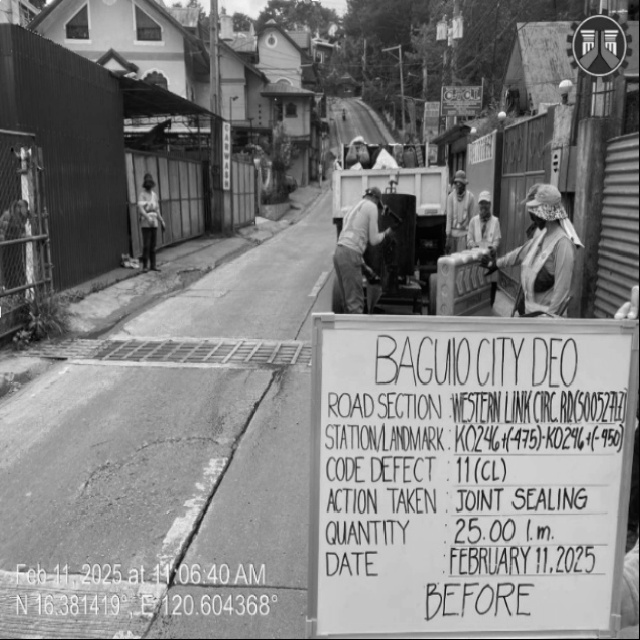 CAR WASH
BAGUIO CITY DEO
ROAD SECTION : WESTERN LINK CIRC. RD(S00527LZ)
STATION/LANDMARK : K0246+(-475)-K0246+(-950)
CODE DEFECT : 11(CL)
ACTION TAKEN : JOINT SEALING
QUANTITY : 25.00 l.m.
DATE : FEBRUARY 11, 2025
BEFORE
Feb 11, 2025 at 11:06:40 AM
N 16.381419°, E 120.604368°